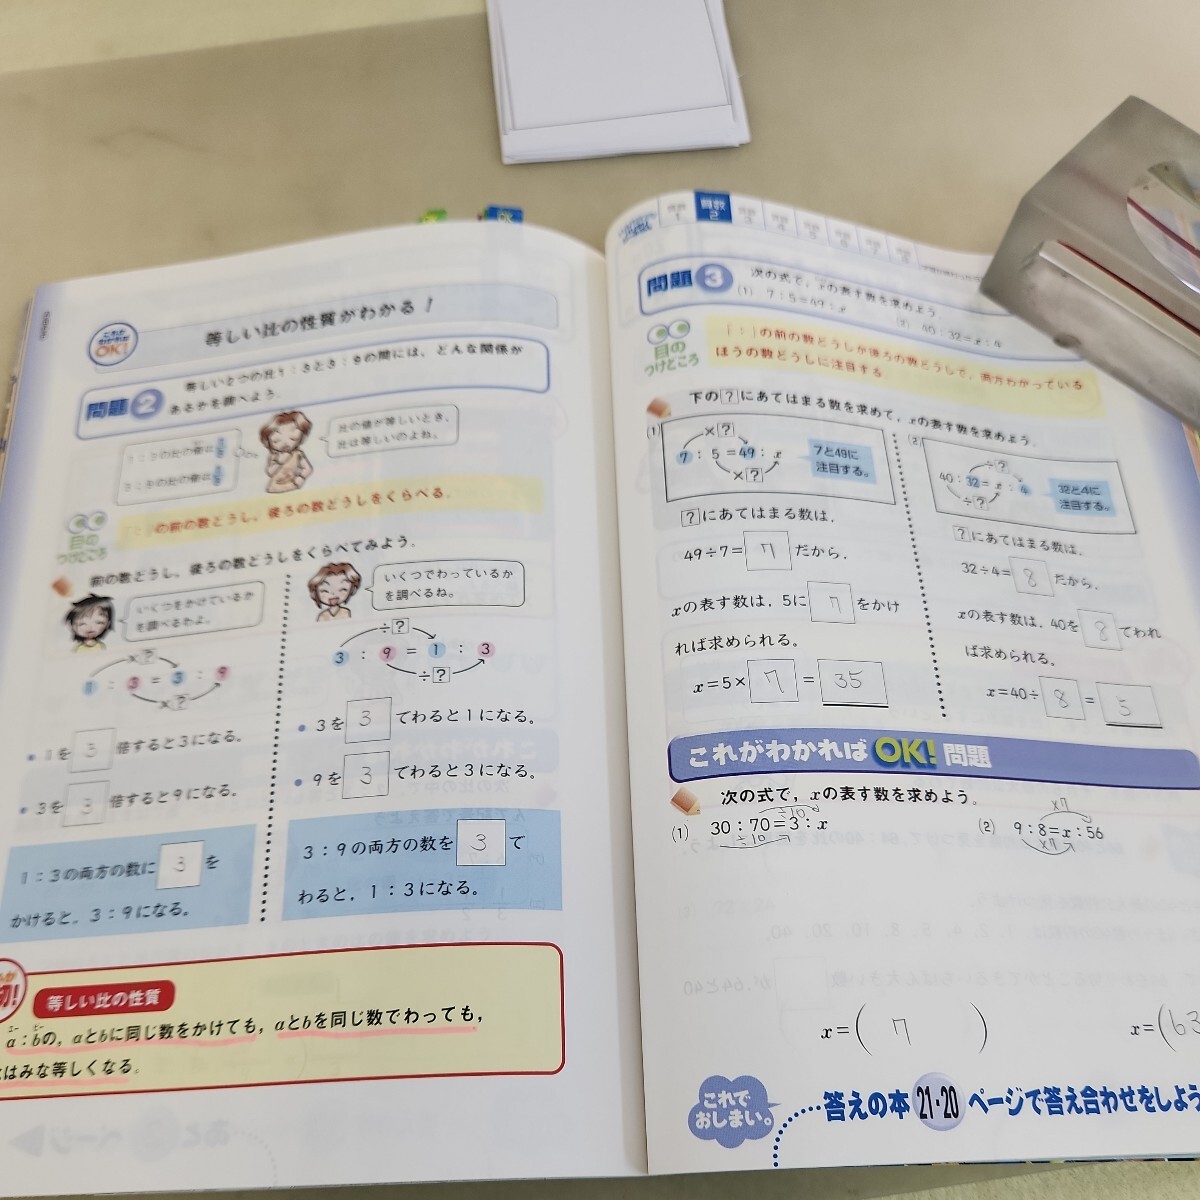 これが
わかれば
OK!
等しい比の性質がわかる!
問題2
等しい2つの比1:3と3:9の間には、どんな関係が
あるかを調べよう。
1:3の比の値は
3:9の比の値は
比の値が等しいとき、
比は等しいのよね。
目の
つけどころ
「:」の前の数どうし、後ろの数どうしをくらべる。
前の数どうし、後ろの数どうしをくらべてみよう。
いくつをかけているか
を調べるわよ。
×?
1:3=3:9
×?
・1を3倍すると3になる。
・3を3倍すると9になる。
1:3の両方の数に3を
かけると、3:9になる。
いくつでわっているか
を調べるね。
÷?
3:9=1:3
÷?
・3を3でわると1になる。
・9を3でわると3になる。
3:9の両方の数を3で
わると、1:3になる。
切!
等しい比の性質
エー ビー
a:bの、aとbに同じ数をかけても、aとbを同じ数でわっても、
はみな等しくなる。
算数
2
問題3
次の式で、xの表す数を求めよう。
(1) 7:5=49:x
(2) 40:32=x:4
目の
つけどころ
「:」の前の数どうしか後ろの数どうしで、両方わかっている
ほうの数どうしに注目する
下の?にあてはまる数を求めて、xの表す数を求めよう。
(1)
×?
7:5=49:x
×?
7と49に
注目する。
?にあてはまる数は、
49÷7=7だから、
xの表す数は、5に7をかけ
れば求められる。
x=5×7=35
(2)
÷?
40:32=x:4
÷?
32と4に
注目する。
?にあてはまる数は、
32÷4=8だから、
xの表す数は、40を8でわれ
ば求められる。
x=40÷8=5
これがわかればOK!問題
次の式で、xの表す数を求めよう。
÷10
(1) 30:70=3:x
÷10
×7
(2) 9:8=x:56
×7
x=(7)
x=(63
これで
おしまい。
答えの本21・20ページで答え合わせをしよう